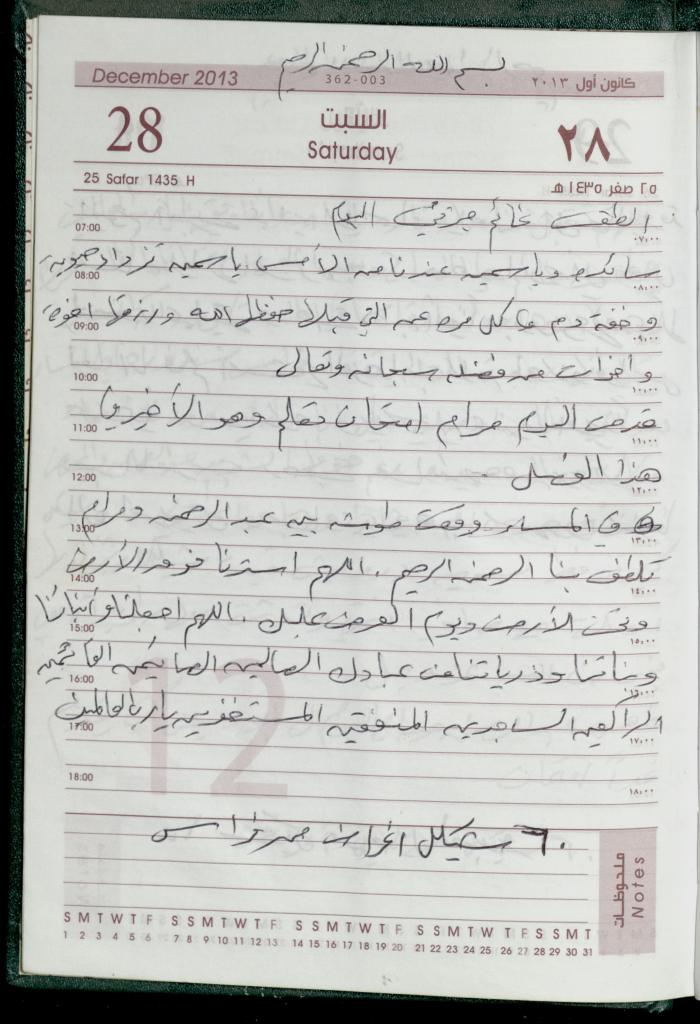 بسم الله الرحمن الرحيم
December 2013
362-003
كانون أول ٢٠١٣
28
السبت
Saturday
٢٨
25 Safar 1435 H
٢٥ صفر ١٤٣٥ هـ
الطقس غائم جزئي اليوم
07:00
٠٧:٠٠
ساندره وياسمين عندنا من الأمس ياسمين تزداد حيوية
08:00
٠٨:٠٠
وخفة دم عن كل مرة عن التي قبلها حفظها الله ورزقها اخوة
09:00
٠٩:٠٠
واخوات من فضله سبحانه وتعالى
10:00
١٠:٠٠
قدمت اليوم مرام امتحان وهو الأخير في
11:00
١١:٠٠
هذا الفصل
12:00
١٢:٠٠
في المساء وقعت بين عبد الرحمن ومرام
13:00
١٣:٠٠
تلطف بنا الرحمن الرحيم . اللهم استرنا فوق الأرض
14:00
١٤:٠٠
وتحت الأرض ويوم العرض عليك . اللهم اجعلنا وأبنائنا
15:00
١٥:٠٠
وبناتنا وذرياتنا من عبادك الصالحين الصائمين القائمين
16:00
١٦:٠٠
الراكعين الساجدين المنفقين المستغفرين يا رب العالمين
17:00
١٧:٠٠
12
18:00
١٨:٠٠
٦٠ شيكل
ملحوظات
Notes
S M T W T F S S M T W T F S S M T W T F S S M T W T F S S M T
1 2 3 4 5 6 7 8 9 10 11 12 13 14 15 16 17 18 19 20 21 22 23 24 25 26 27 28 29 30 31